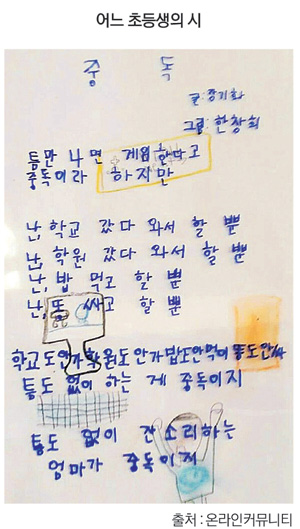 어느 초등생의 시
중 독
글:장기화
그림:한창희
틈만 나면 게임한다고
중독이라 하지만
난, 학교 갔다 와서 할 뿐
난, 학원 갔다 와서 할 뿐
난, 밥 먹고 할 뿐
난, 똥 싸고 할 뿐
학교도안가학원도안가밥도안먹어똥도안싸
틈도 없이 하는 게 중독이지
틈도 없이 잔소리하는
엄마가 중독이지
출처 : 온라인커뮤니티